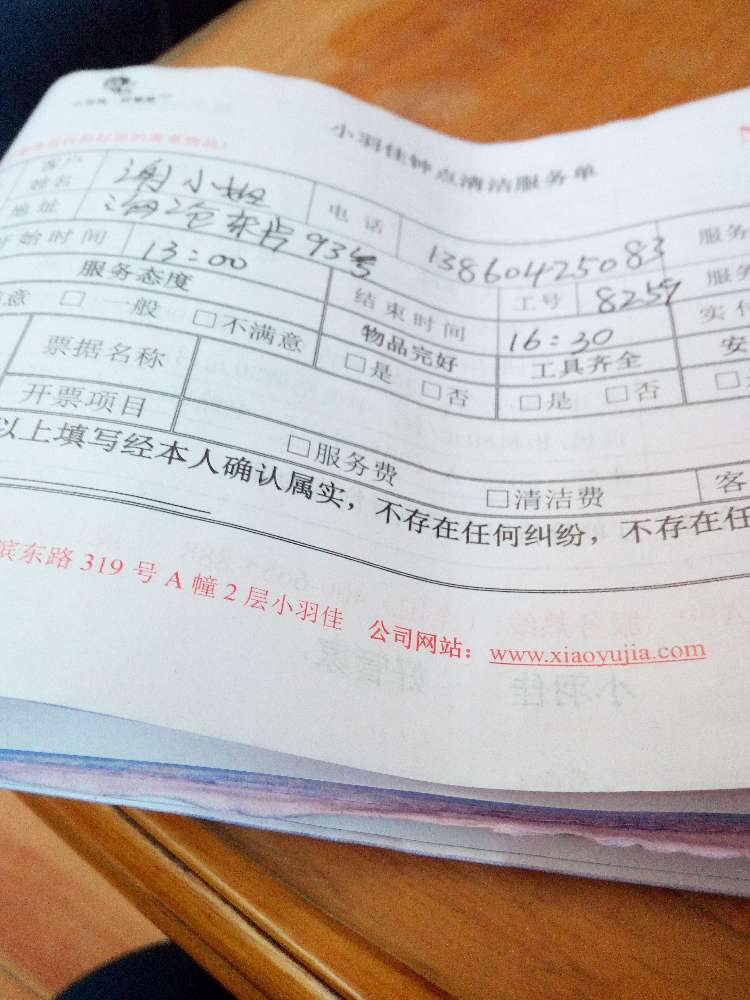 小羽佳钟点清洁服务单
客户姓名 谢小姐 电话 13860425083 服务
地址 海沧东片93号 工号 8259 服
开始时间 13:00 结束时间 16:30 实付
服务态度 物品完好 工具齐全 安
意 □一般 □不满意 □是 □否 □是 □否 □
票据名称
开票项目 □服务费 □清洁费 客
以上填写经本人确认属实，不存在任何纠纷，不存在任
滨东路 319 号 A 幢 2 层小羽佳 公司网站：www.xiaoyujia.com